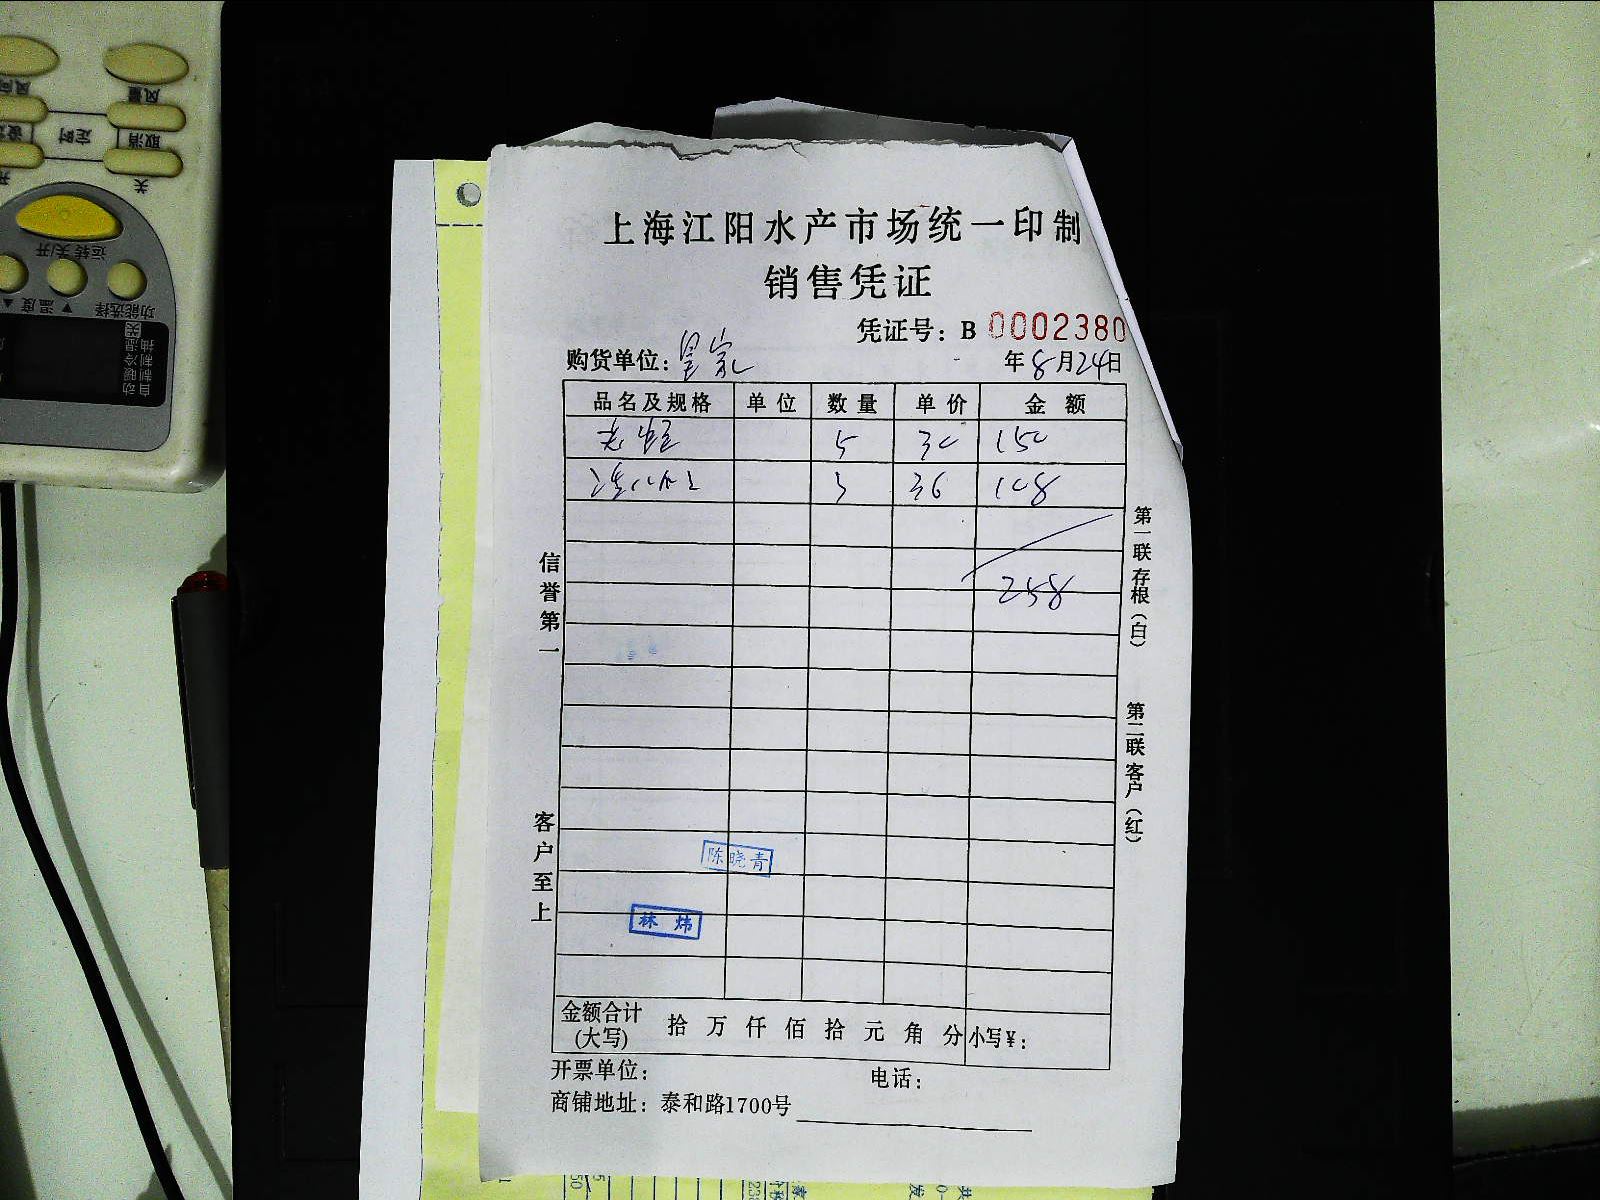 上海江阳水产市场统一印制
销售凭证
凭证号：B 0002380
购货单位：皇家 年8月24日
品名及规格 单位 数量 单价 金额
5 30 150
3 36 108
258
信誉第一
客户至上
第一联 存根（白）
第二联 客户（红）
陈晓青
林炜
金额合计(大写) 拾 万 仟 佰 拾 元 角 分 小写¥：
开票单位： 电话：
商铺地址：泰和路1700号
风量
取消
定时
关
运转关/开
功能选择
▼ 温度 ▲